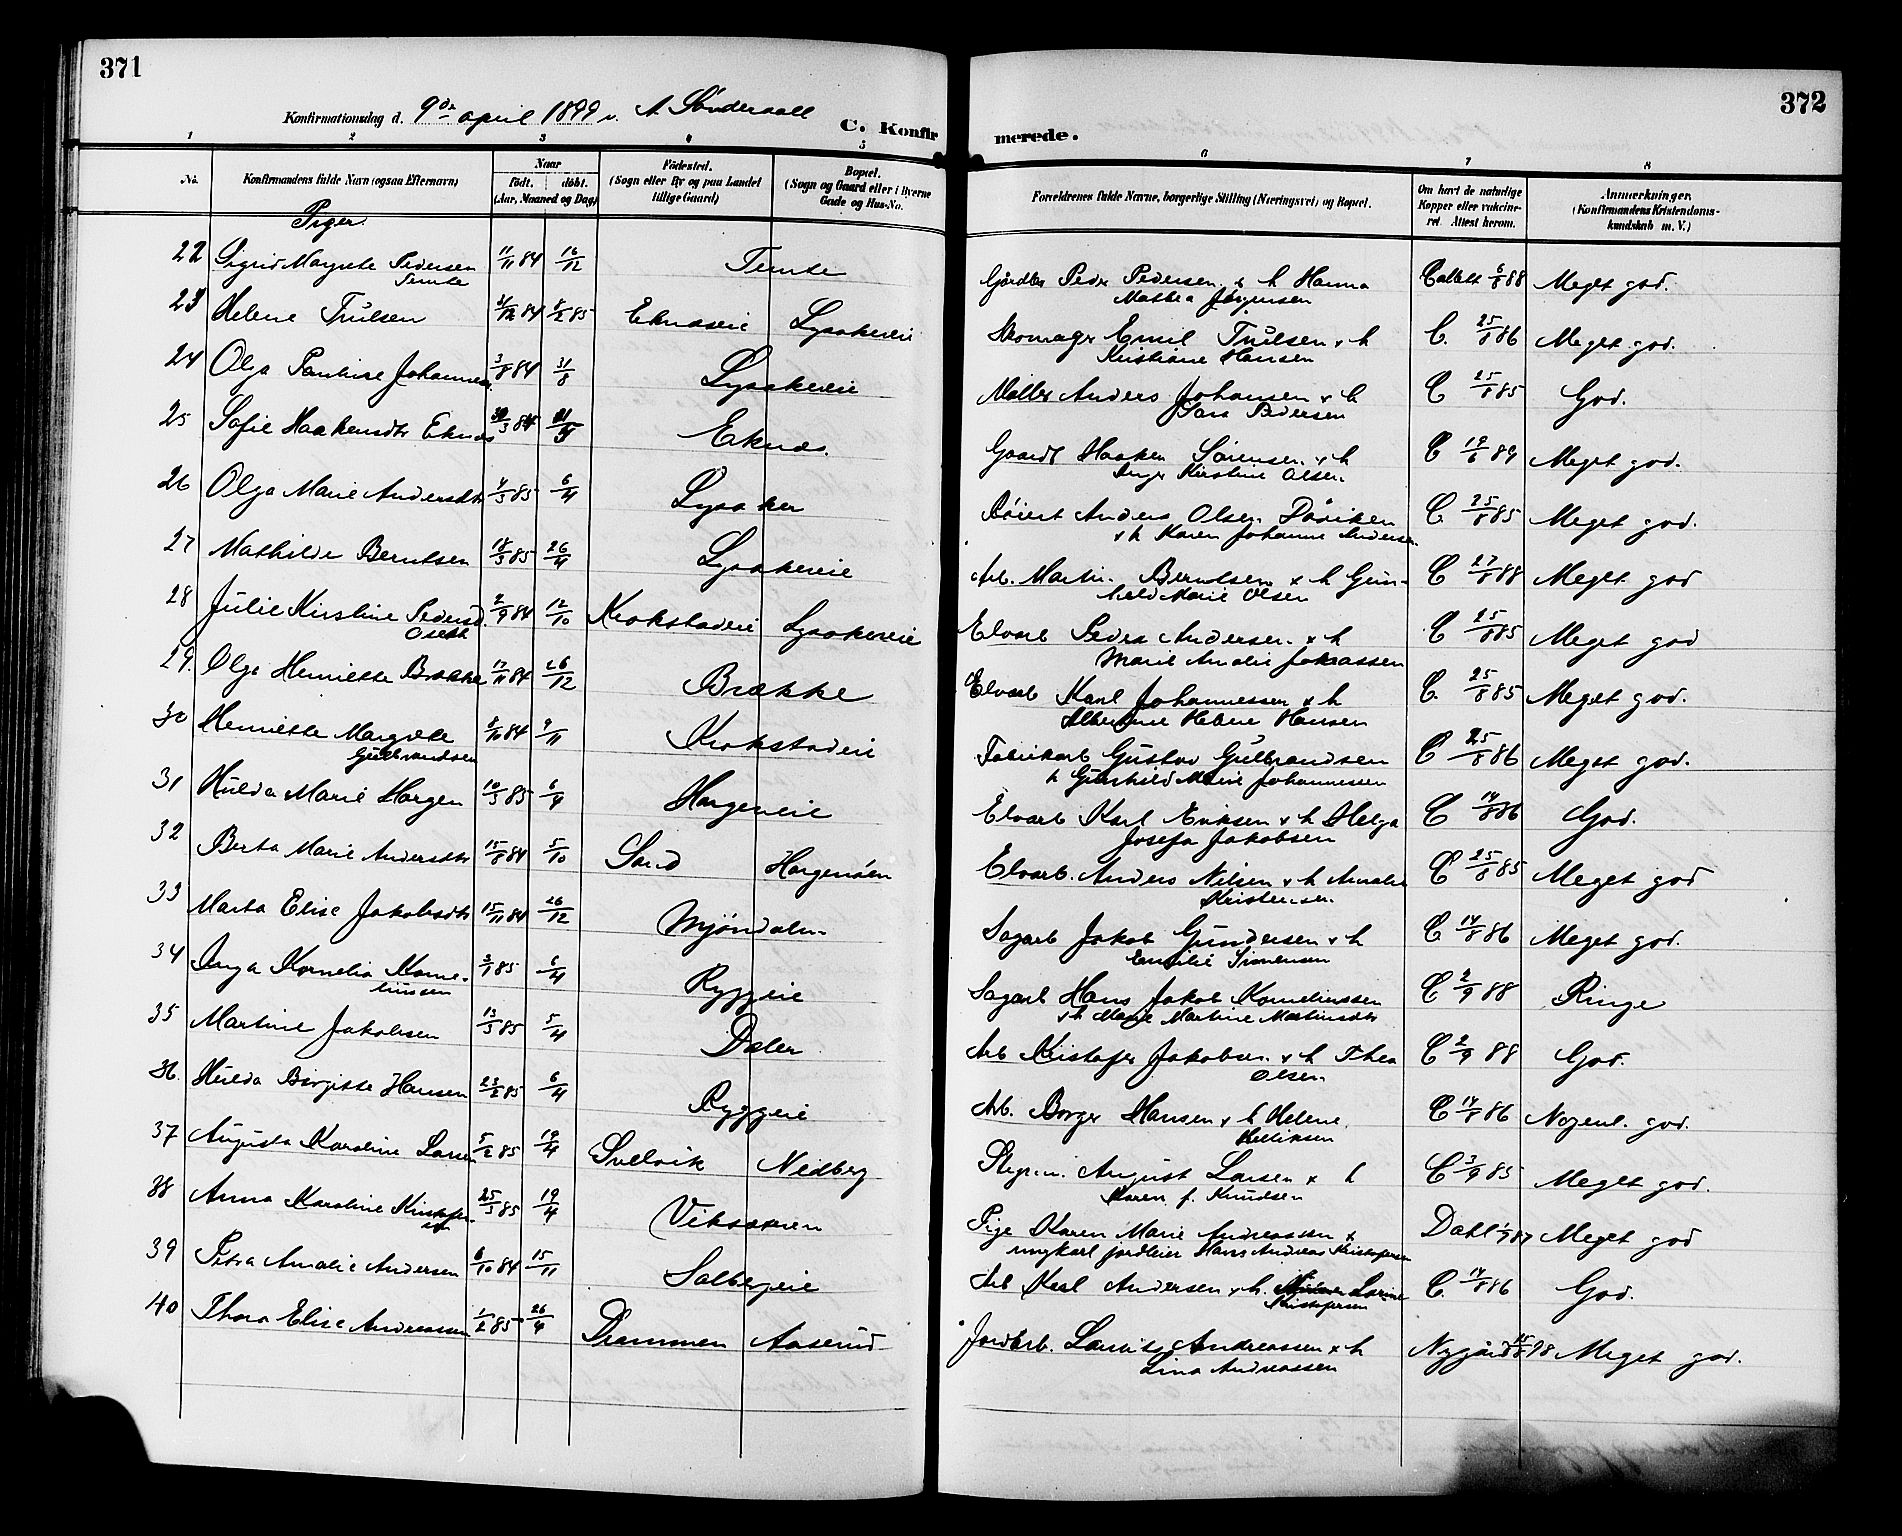 371
372
Konfirmationsdag d. 9de april 1899 v. A. Sönderaall
C. Konfirmerede.
1 2 3 4 5 6 7 8
No. Konfirmandens fulde Navn (ogsaa Efternavn) Naar født. døbt. (Aar, Maaned og Dag) Fødested. (Sogn eller By og paa Landet tillige Gaard) Bopæl. (Sogn og Gaard eller i Byerne Gade og Hus-No. Forældrenes fulde Navne, borgerlige Stilling (Næringsvei) og Bopæl. Om havt de naturlige Kopper eller vaksineret. Attest herom. Anmærkninger. (Konfirmandens Kristendomskundskab m. V.)
Piger.
22 Sigrid Margrete Pedersen Temte 11/11 84 16/12 Temte Gårdbr Peder Pedersen & h Hanna Mathea Jørgensen 6/8 88 Meget god.
23 Helene Trulsen 31/12 84 8/2 85 Eknæseie Lysakereie Skomager Emil Trulsen & h Kristiane Hansen C. 25/8 86 Meget god.
24 Olga Pauline Johannes. 3/8 84 31/8 Lysakereie Møller Anders Johansen & h Sara Pedersen C 25/8 85 God.
25 Sofie Haakensdtr Eknæs 84 Eknæs. Gaardb Haaken Sørensen & h Inger Kirstine Olsen. C 19/6 89 Meget god.
26 Olga Marie Andersdtr 4/3 85 6/4 Lysaker Anders Olsen & h Karen Johanne Andersen C. 25/8 85 Meget god.
27 Mathilde Berntsen 18/3 85 26/4 Lysakereie Arb. Martin Berntsen & h Gunhild Marie Olsen C 27/8 88 Meget god
28 Julie Kirstine Pedersd. 2/9 84 12/10 Krokstadeie Lysakereie Elvarb Peder Andersen & h Marie Amalie C 25/8 85 Meget god
29. Olga Henriette Brække 17/11 84 26/12 Brække Elvarb Karl Johannessen & h Albertine Helene Hansen C. 25/8 85 Meget god.
30 Henriette Margrete Gulbrandsen 8/10 84 9/11 Krokstadeie Fabrikarb Gustav Gulbrandsen h Gunhild Marie Johannessen C 25/8 86 Meget god.
31 Hulda Marie Horgen 10/3 85 6/4 Horgeneie Elvarb Karl Eriksen & h Helga Josefa Jakobsen C 14/8 86 God.
32 Berta Marie Andersdtr 15/8 84 5/10 Sand Horgenöen Elvarb. Anders Nilsen & h Amalie Kristensen C 25/8 85 Meget god
33 Marta Elise Jakobsdtr 15/11 84 26/12 Mjöndalen Sagarb Jakob Gundersen & h Emilie Simensen C. 14/8 86 Meget god.
34 Inga Kornelia Korneliussen 3/1 85 6/4 Ryggeie Sagarb Hans Jakob Korneliussen & h Marie Martine Martinsdtr C 2/9 88 Ringe
35 Martine Jakobsen 13/3 85 5/4 Daler Arb Kristofer Jakobsen & h Thea Olsen C 2/9 88 God.
36. Hulda Birgitte Hansen 23/2 85 6/4 Ryggeie Arb. Borger Hansen & h Helene C 14/8 86 Nogenl. god.
37 Augusta Karoline Larsen 5/2 85 19/4 Svelvik Nedberg August Larsen & h Karen f. Knudsen C 3/9 85 Meget god.
38 Anna Karoline 25/3 85 19/4 Viksæren Pige Karen Marie Andreassen & ungkarl jordleier Hans Andreas Kristofersen Dahl 87 Meget god
39 Petra Amalie Andersen 6/10 84 15/11 Solbergeie Arb Karl Andersen & h. Larine Kristofersen C. 14/8 86 God.
40 Thora Elise Andreassen 1/2 85 26/4 Drammen Aaserud Jordarb. Lauritz Andreassen & h Lina Andreassen Nygård 15/8 98 Meget god.